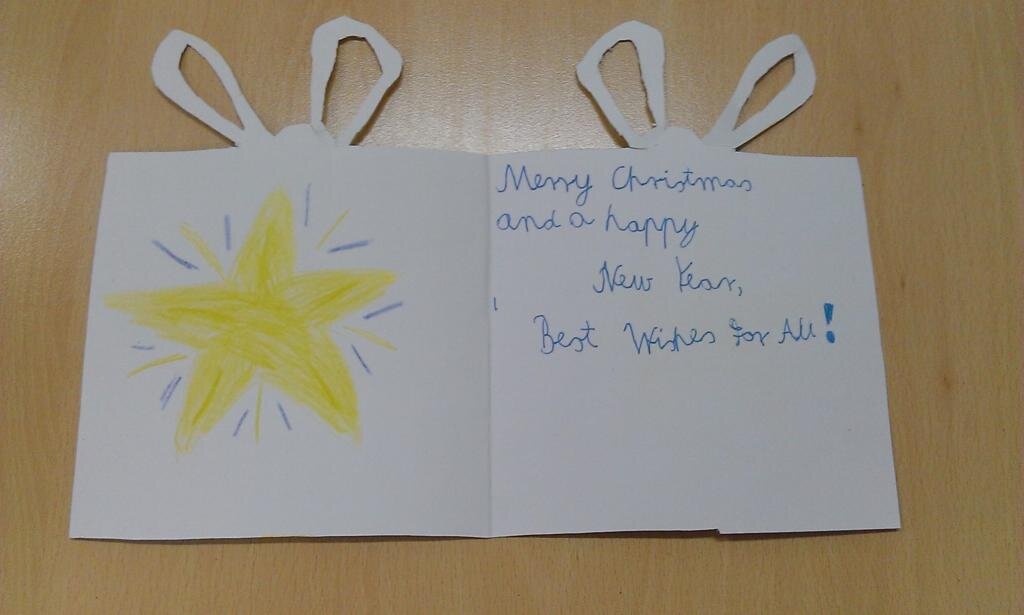 Merry Christmas
and a happy
New Year,
Best Wishes for All!